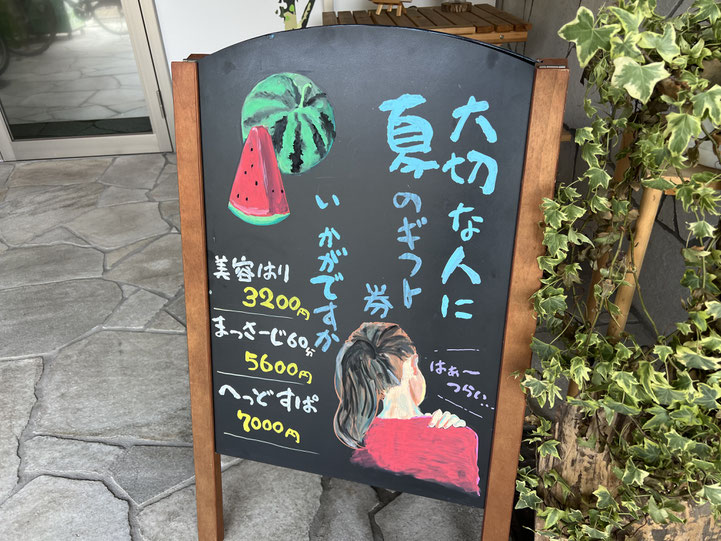 大切な人に
夏のギフト券
いかがですか
美容はり
3200円
まっさーじ60分
5600円
へっどすぱ
7000円
はぁ〜
つらい…